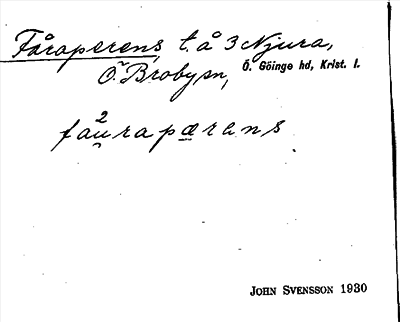 Fåraperens, t. å 3 Njura,
Ö. Broby sn, Ö. Göinge hd, Krist. l.
fau̯²raperens
JOHN SVENSSON 1930